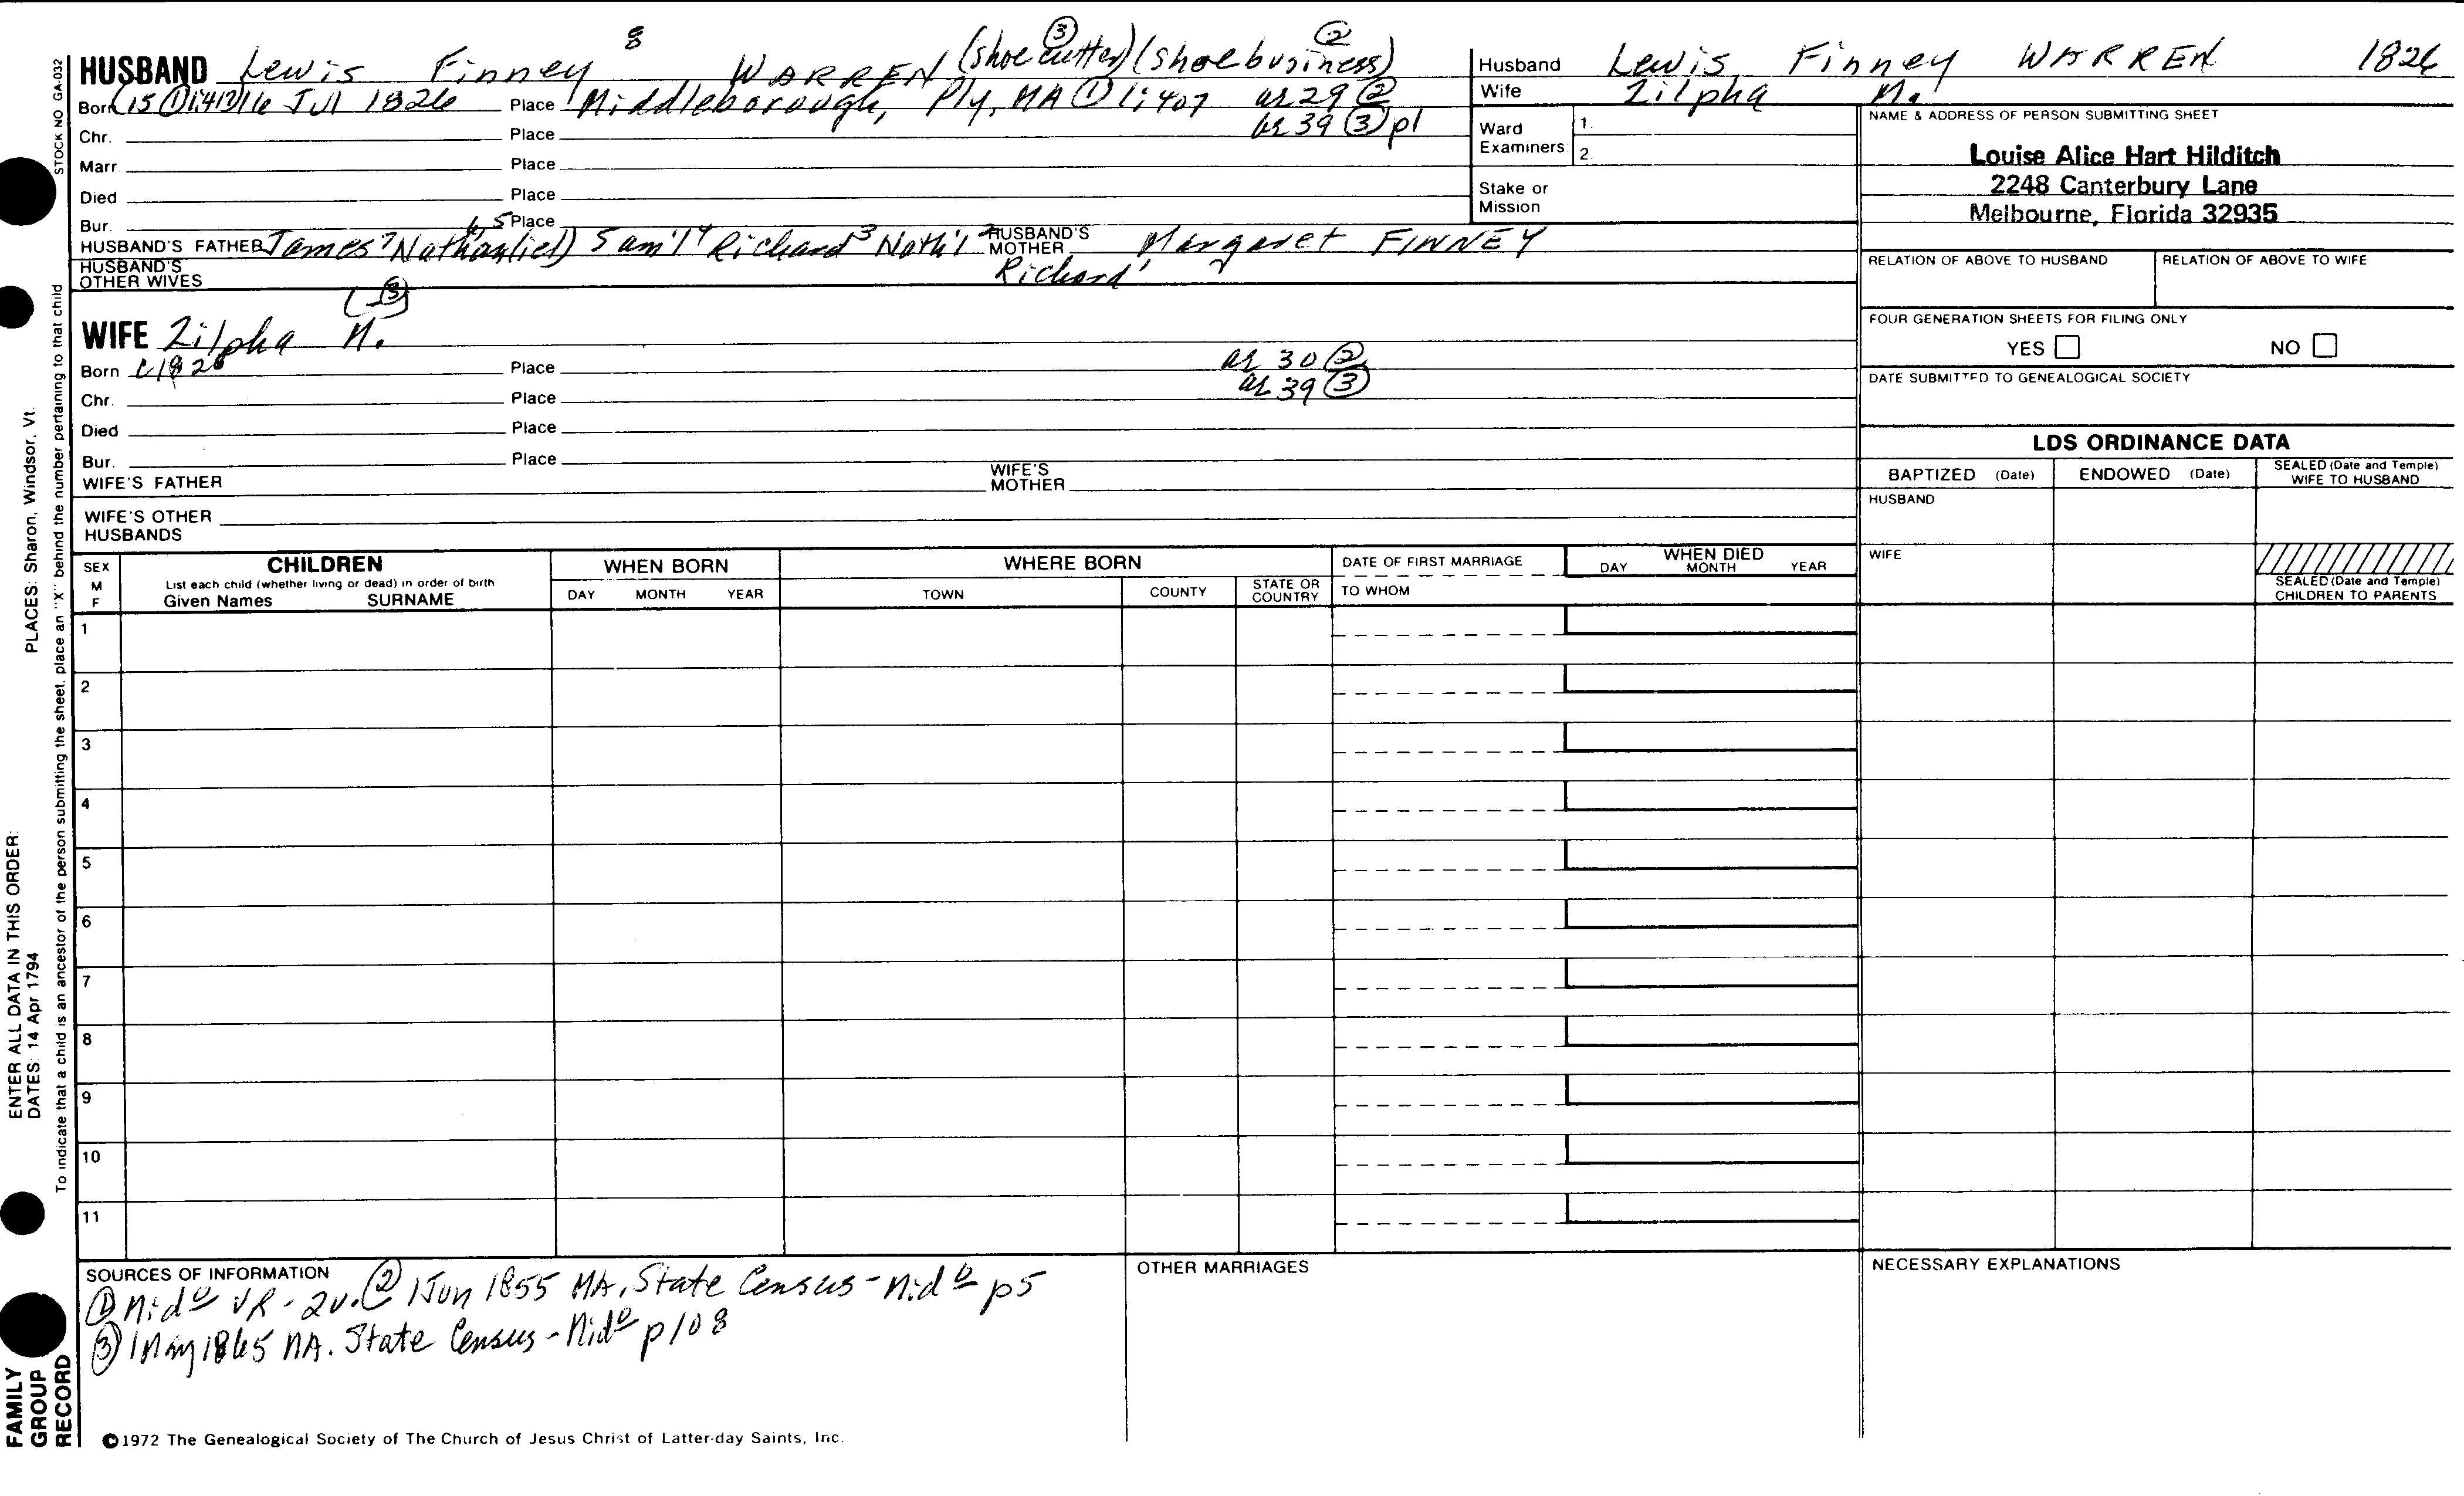 HUSBAND Lewis Finney 8 WARREN (shoe cutter) ③ (shoe business) ②
Born (15 ① 1:413) 16 Jul 1826 Place Middleborough, Ply, MA ① 1:407 as 29 ②
Chr. Place as 39 ③ p1
Marr. Place
Died Place
Bur. Place
HUSBAND'S FATHER James 7 Nathan(iel) 6,5 Sam'l 4 Richard 3 Nath'l 2 Richard 1 HUSBAND'S MOTHER Margaret FINNEY
HUSBAND'S OTHER WIVES
(③)
WIFE Zilpha M.
Born c1826 Place as 30 ②
Chr. Place as 39 ③
Died Place
Bur. Place
WIFE'S FATHER WIFE'S MOTHER
WIFE'S OTHER HUSBANDS
Husband Lewis Finney WARREN 1826
Wife Zilpha M.
Ward Examiners 1. 2.
Stake or Mission
NAME & ADDRESS OF PERSON SUBMITTING SHEET
Louise Alice Hart Hilditch
2248 Canterbury Lane
Melbourne, Florida 32935
RELATION OF ABOVE TO HUSBAND RELATION OF ABOVE TO WIFE
FOUR GENERATION SHEETS FOR FILING ONLY
YES NO
DATE SUBMITTED TO GENEALOGICAL SOCIETY
LDS ORDINANCE DATA
BAPTIZED (Date) ENDOWED (Date) SEALED (Date and Temple) WIFE TO HUSBAND
HUSBAND
WIFE
SEALED (Date and Temple) CHILDREN TO PARENTS
SEX M F
CHILDREN
List each child (whether living or dead) in order of birth
Given Names SURNAME
WHEN BORN
DAY MONTH YEAR
WHERE BORN
TOWN COUNTY STATE OR COUNTRY
DATE OF FIRST MARRIAGE
TO WHOM
WHEN DIED
DAY MONTH YEAR
1
2
3
4
5
6
7
8
9
10
11
SOURCES OF INFORMATION
① Midº VR - 2v. ② 1 Jun 1855 MA. State Census - Midº p5
③ 1 May 1865 MA. State Census - Midº p108
OTHER MARRIAGES
NECESSARY EXPLANATIONS
©1972 The Genealogical Society of The Church of Jesus Christ of Latter-day Saints, Inc.
STOCK NO GA-032
To indicate that a child is an ancestor of the person submitting the sheet, place an "X" behind the number pertaining to that child
ENTER ALL DATA IN THIS ORDER: PLACES: Sharon, Windsor, Vt.
DATES: 14 Apr 1794
FAMILY
GROUP
RECORD